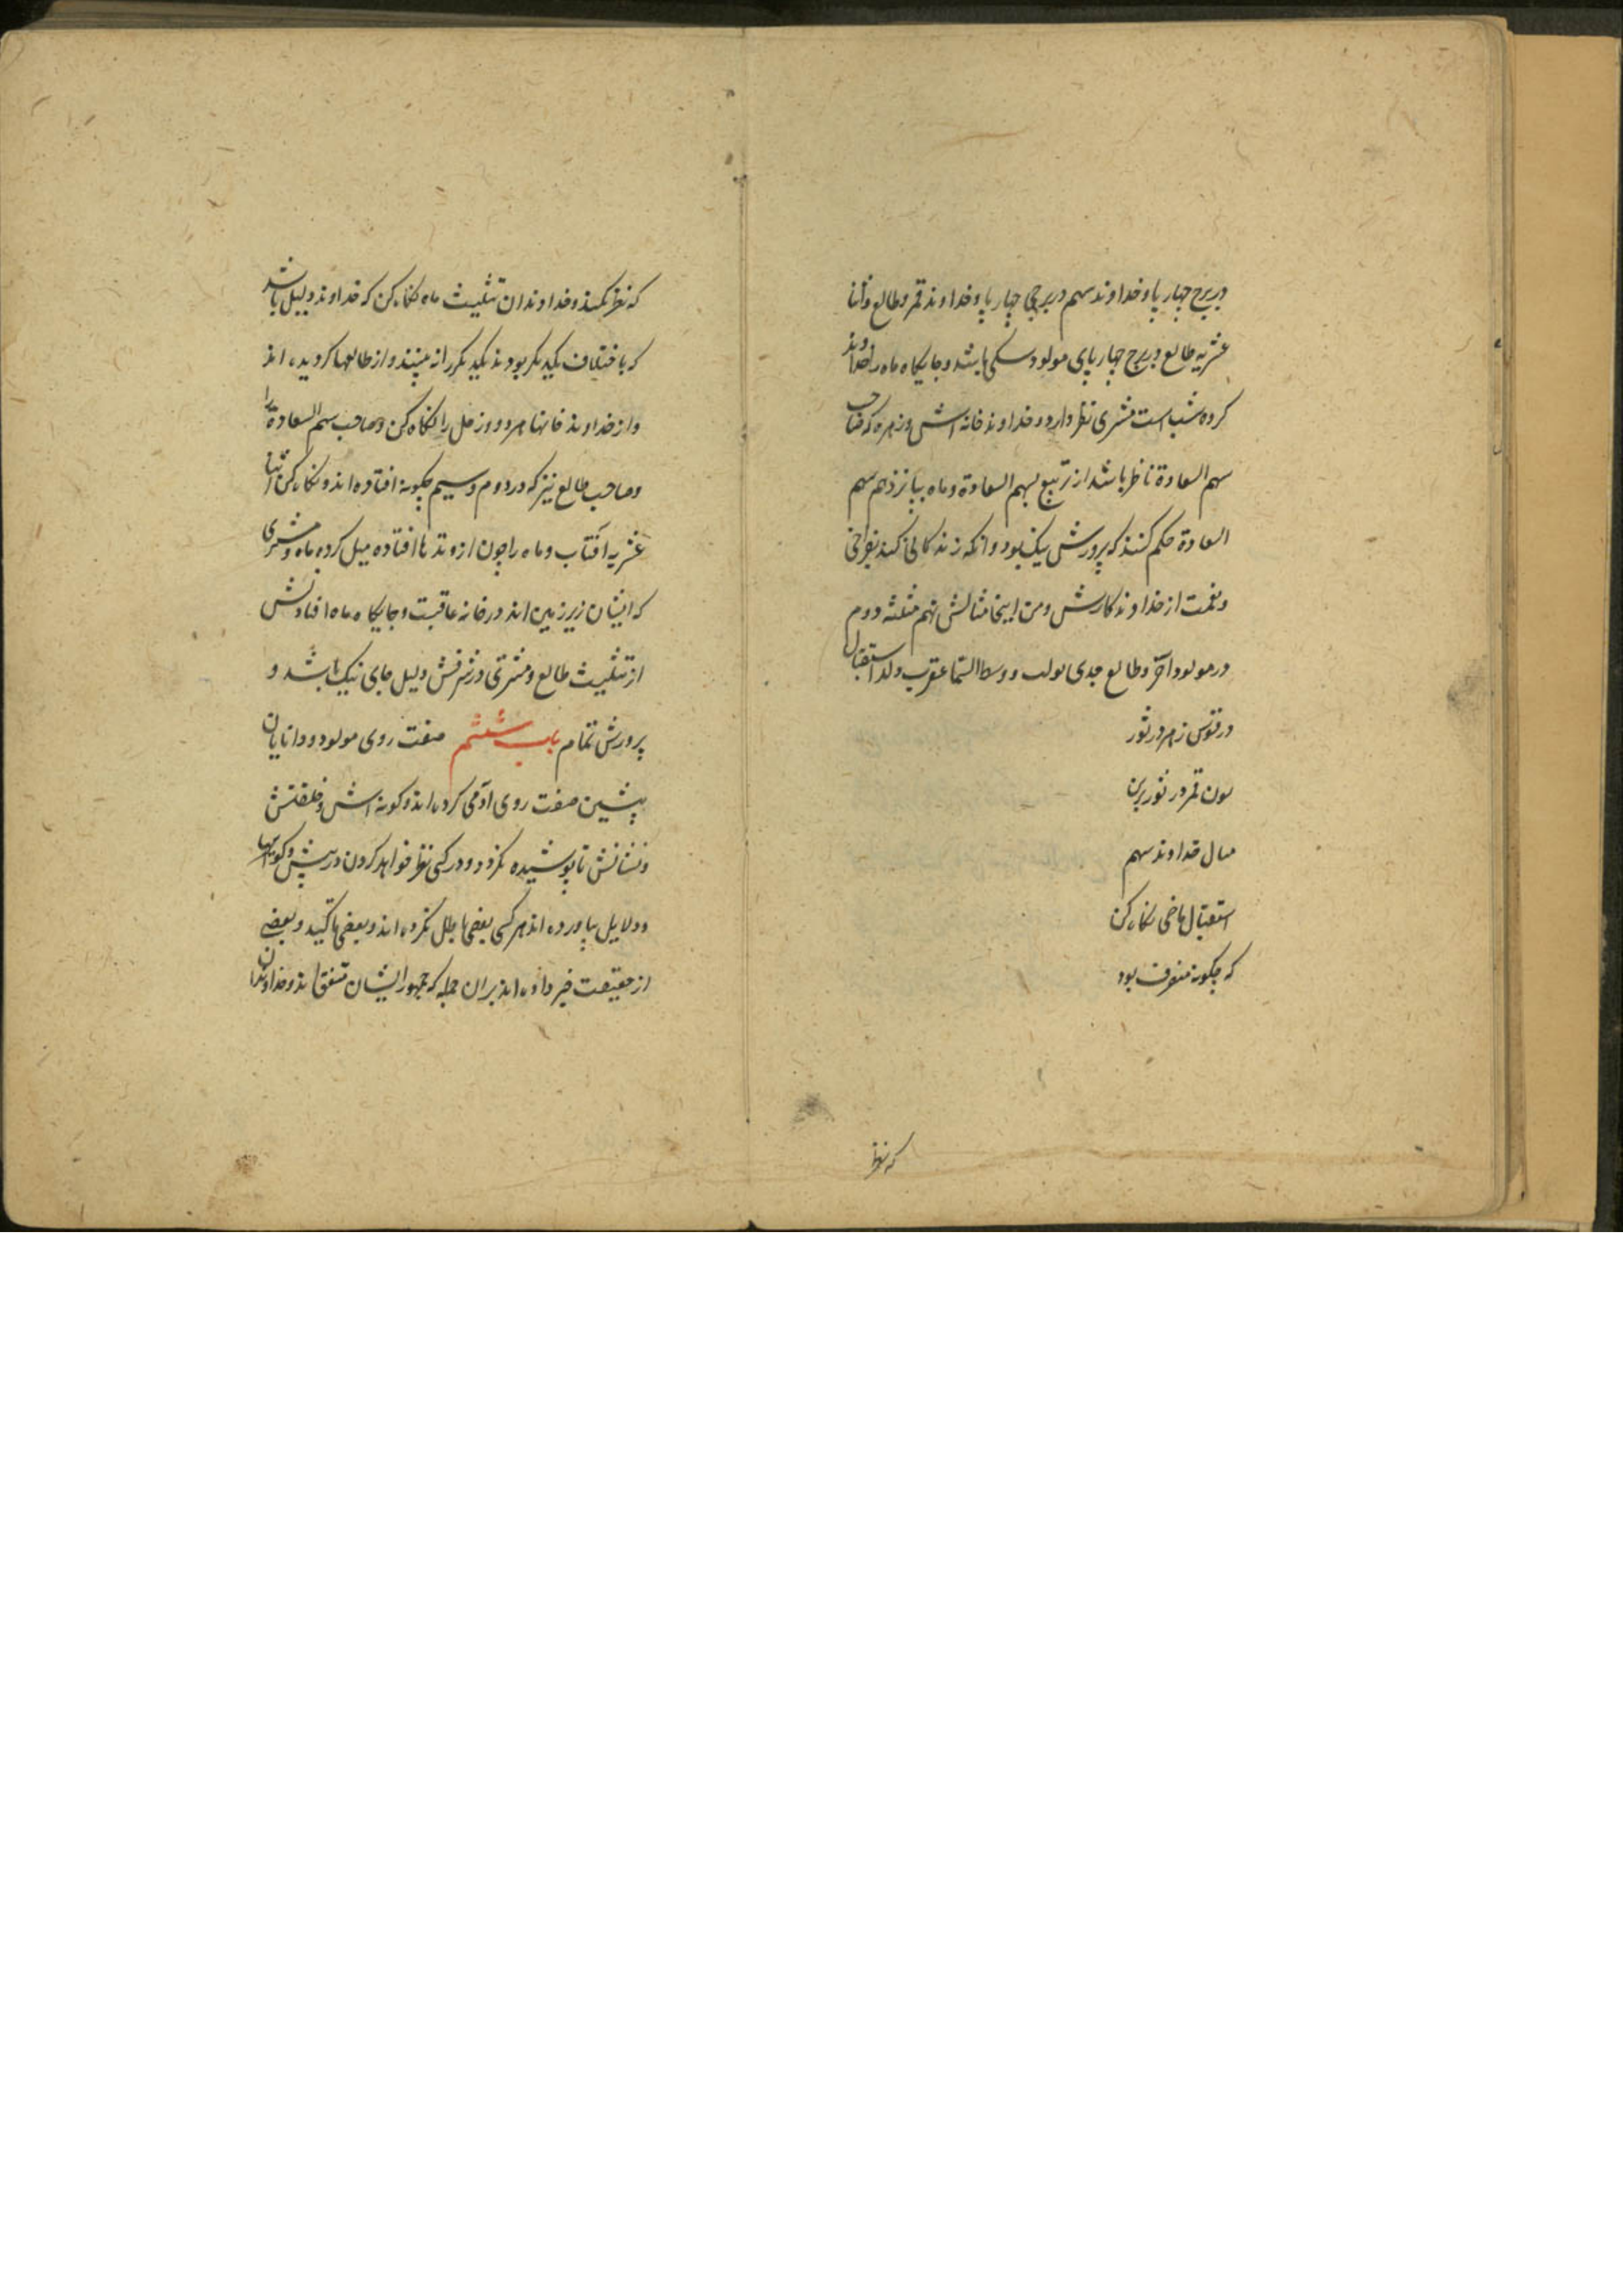 در برج چهار پا و خداوند سهم در برجی چهار پا و خداوند قمر و طالع و اثنا
عشریه طالع در برج چهار پای مولود سکی باشد و جایگاه ماه را خداوند
کرده شب است مشتری نظر دارد و خداوند خانه اش و زهره که صاحب
سهم السعادة ناظر باشد از تربیع بسهم السعادة و ماه بپانزدهم سهم
السعادة حکم کنند که پرورش نیک بود و آنکه زندکانی کند بفراخی
و نعمت از خداوند کارش و من اینجا مثالش نهم مثلثه دوم
در مولود آخر و طالع جدی و وسط السما عقرب ولد استقبال
در قوس زهره در ثور
قمر در ثور برین
مثال خداوند سهم
استقبال ماضی نکاه کن
که چکونه منصرف بود
که نظر
که نظر نکند و خداوندان تثلیث ماه نکاه کن که خداوند دلیل باشد
که باختلاف یکدیکر بودند یکدیکر را نه بینند و از طالعها کردیده اند
و از خداوند خانها هر دو و زحل را نکاه کن و صاحب سهم السعادة را
و صاحب طالع نیز که در دوم و سیم چکونه افتاده اند و نکاه کن اثنا
عشریه آفتاب و ماه را چون از وتدها افتاده میل کرده ماه و مشتری
که ایشان زیر زمین اند در خانه عاقبت و جایکاه ماه افتادنش
از تثلیث طالع و مشتری در شرفش دلیل جای نیک باشد و
پرورش تمام باب ششم صفت روی مولود و دانایان
پیشین صفت روی آدمی کرده اند و کونه اش و خلقتش
و نشانش تا پوشیده نکردد و در کی نظر خواهد کردن در پیش و کونها
و دلایل بیاورده اند هر کسی بعضی باطل نکرده اند و بعضی تاکید و بعضی
از حقیقت خبر داده اند بران جمله که جمهور ایشان متفق اند و خداوندان